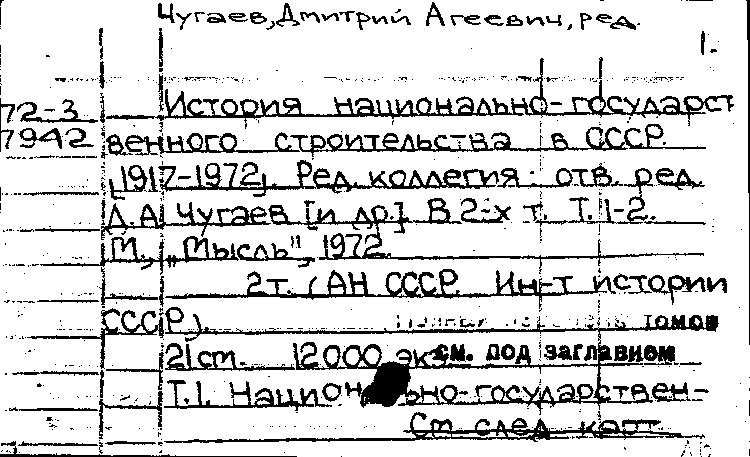 Чугаев, Дмитрий Агеевич, ред.
1.
72-3
7942
История национально-государст
венного строительства в СССР.
[1917-1972]. Ред. коллегия: отв. ред.
Д.А. Чугаев [и др.]. В 2-х т. Т. 1-2.
М., „Мысль", 1972.
2т. (АН СССР. Ин-т истории
СССР).
томов
21 см. 12000 экз. см. под заглавием
Т.1. Национально-государствен-
См след карт.